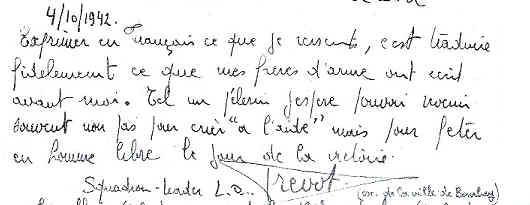 4/10/1942.
Exprimer en Français ce que je ressents, c'est traduire
fidèlement ce que mes frères d'arme ont ecrit
avant moi. Tel un pélerin j'espre pouvoir revenir
souvent non pas pour crier "a l'aide" mais pour fêter
en homme libre le jour de la victoire.
Squadron-leader L.O. Prevot. (esc. de la ville de Bombay)